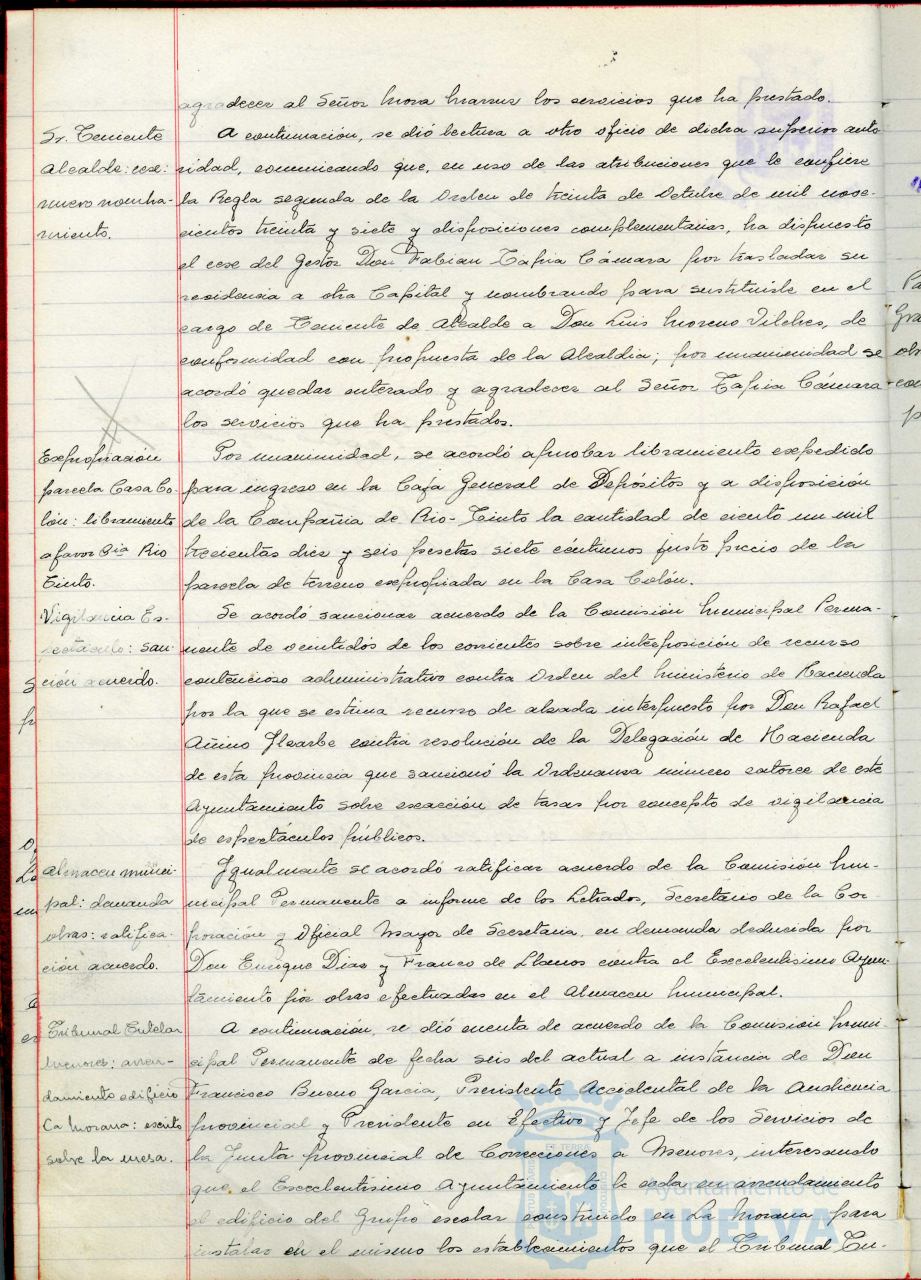 agradecer al Señor Mora Marrux los servicios que ha prestado.
Sr. Teniente
Alcalde: cese:
nuevo nombra-
miento.
A continuación, se dió lectura a otro oficio de dicha superior auto-
ridad, comunicando que, en uso de las atribuciones que le confiere
la Regla segunda de la Orden de treinta de Octubre de mil nove-
cientos treinta y siete y disposiciones complementarias, ha dispuesto
el cese del Gestor Don Fabian Tapia Camara por trasladar su
residencia a otra Capital y nombrando para sustituirle en el
cargo de Teniente de Alcalde a Don Luis Moreno Vilches, de
conformidad con propuesta de la Alcaldia; por unanimidad se
acordó quedar enterado y agradecer al Señor Tapia Cámara
los servicios que ha prestados.
Expropiación
parcela Casa Co-
lón: libramiento
a favor Cía Rio
Tinto.
Por unanimidad, se acordó aprobar libramiento expedido
para ingreso en la Caja General de Depósitos y a disposición
de la Compañia de Rio-Tinto la cantidad de ciento un mil
trecientas diez y seis pesetas siete céntimos justo precio de la
parcela de terreno expropiada en la Casa Colón.
Vigilancia Es-
pectáculo: san-
ción acuerdo.
Se acordó sancionar acuerdo de la Comisión Municipal Perma-
nente de veintidós de los corrientes sobre interposición de recurso
contencioso administrativo contra Orden del Ministerio de Hacienda
por la que se estima recurso de alzada interpuesto por Don Rafael
contra resolución de la Delegación de Hacienda
de esta provincia que sancionó la Ordenanza número catorce de este
Ayuntamiento sobre exacción de tasas por concepto de vigilancia
de espectáculos públicos.
Almacen munici-
pal: demanda
obras: ratifica-
ción acuerdo.
Igualmente se acordó ratificar acuerdo de la Comisión Mu-
nicipal Permanente a informe de los Letrados, Secretario de la Cor-
poración y Oficial Mayor de Secretaria, en demanda deducida por
Don Enrique Diaz y Franco de Llanos contra el Excelentisimo Ayun-
tamiento por obras efectuadas en el Almacen Municipal.
Tribunal Tutelar
Menores: arren-
damiento edificio
La Morana: escrito
sobre la mesa.
A continuación, se dió cuenta de acuerdo de la Comisión Muni-
cipal Permanente de fecha seis del actual a instancia de Don
Francisco Bueno Garcia, Presidente Accidental de la Audiencia
provincial y Presidente en Efectivo y Jefe de los Servicios de
la Junta provincial de Correcciones a Menores, interesando
que el Excelentisimo Ayuntamiento le ceda en arrendamiento
el edificio del Grupo escolar construido en La Morana para
instalar en el mismo los establecimientos que el Tribunal Tu-
Ayuntamiento de
HUELVA